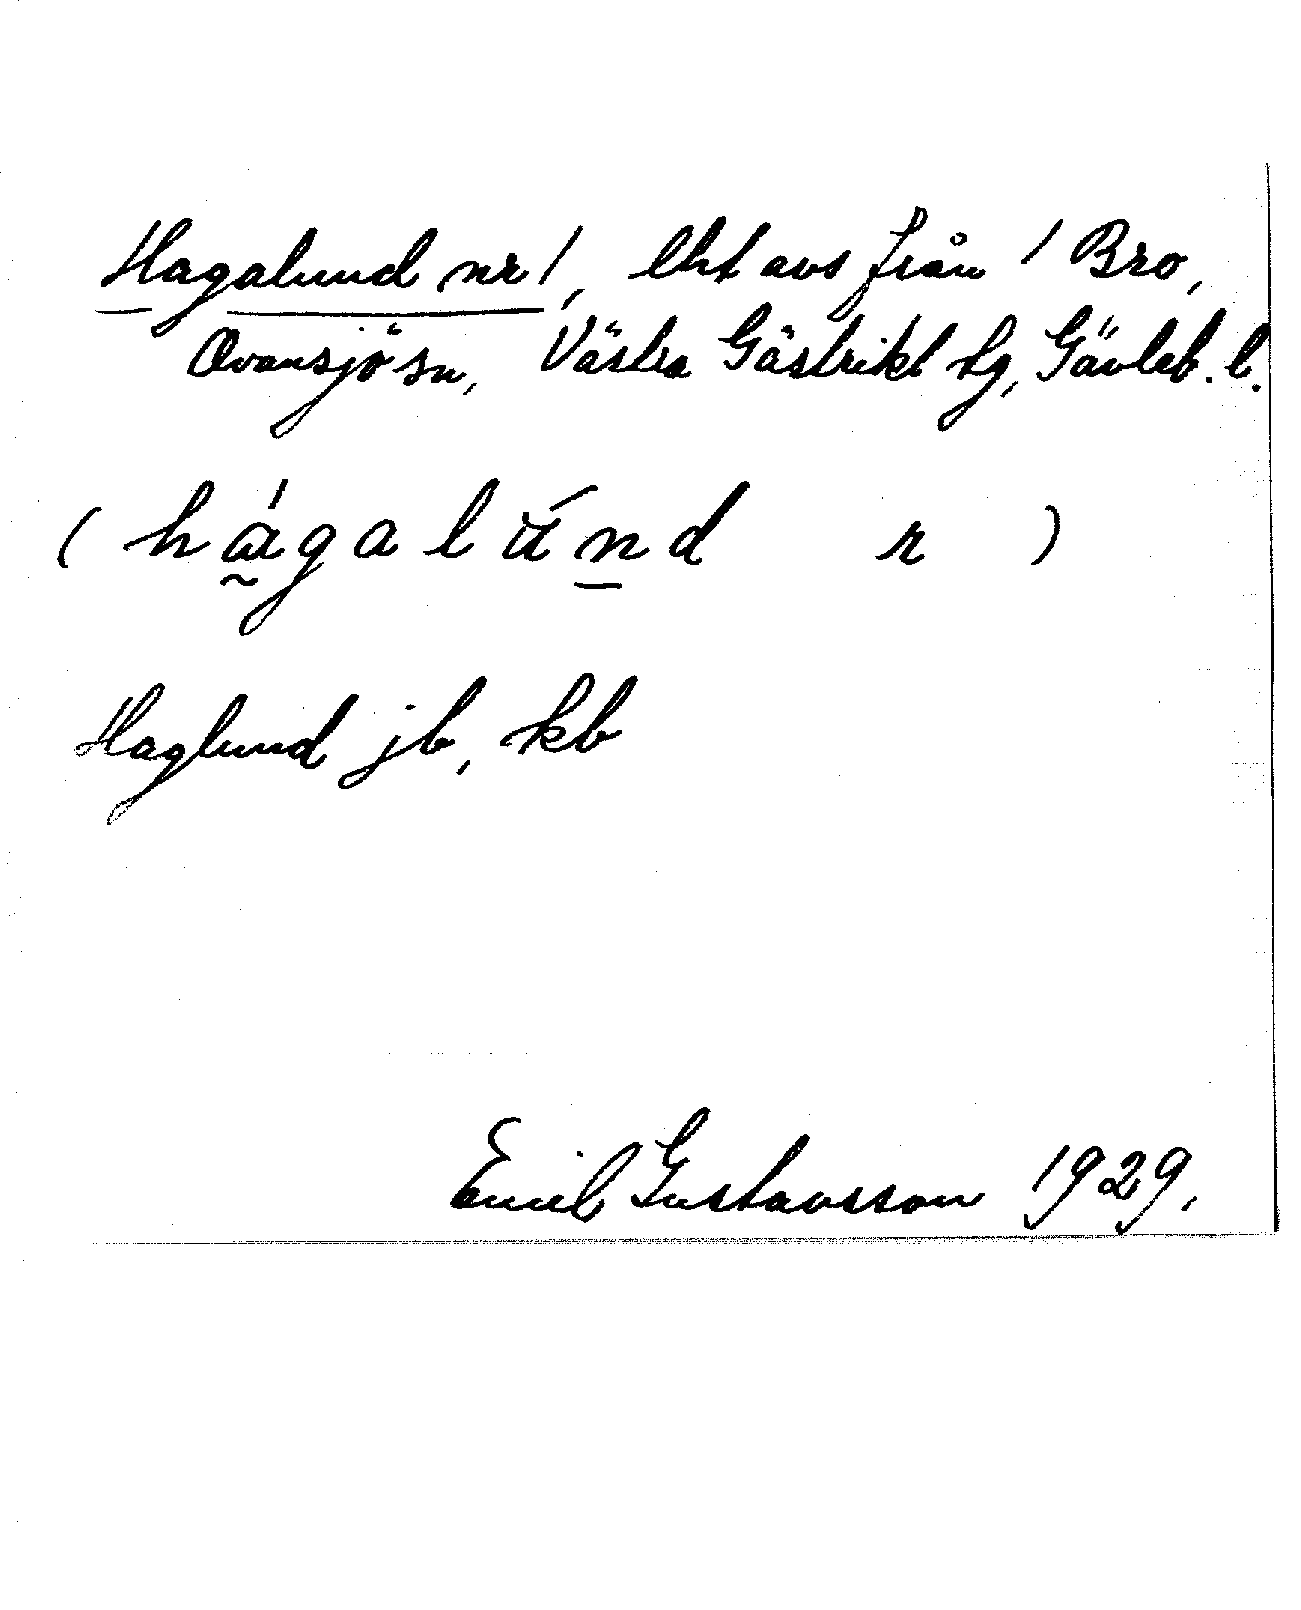 Hagalund nr 1, lht avs från 1 Bro,
Ovansjö sn, Västra Gästrikl tg, Gävleb. l.
( hágalúnd r )
Haglund jb, kb
Emil Gustavsson 1929.